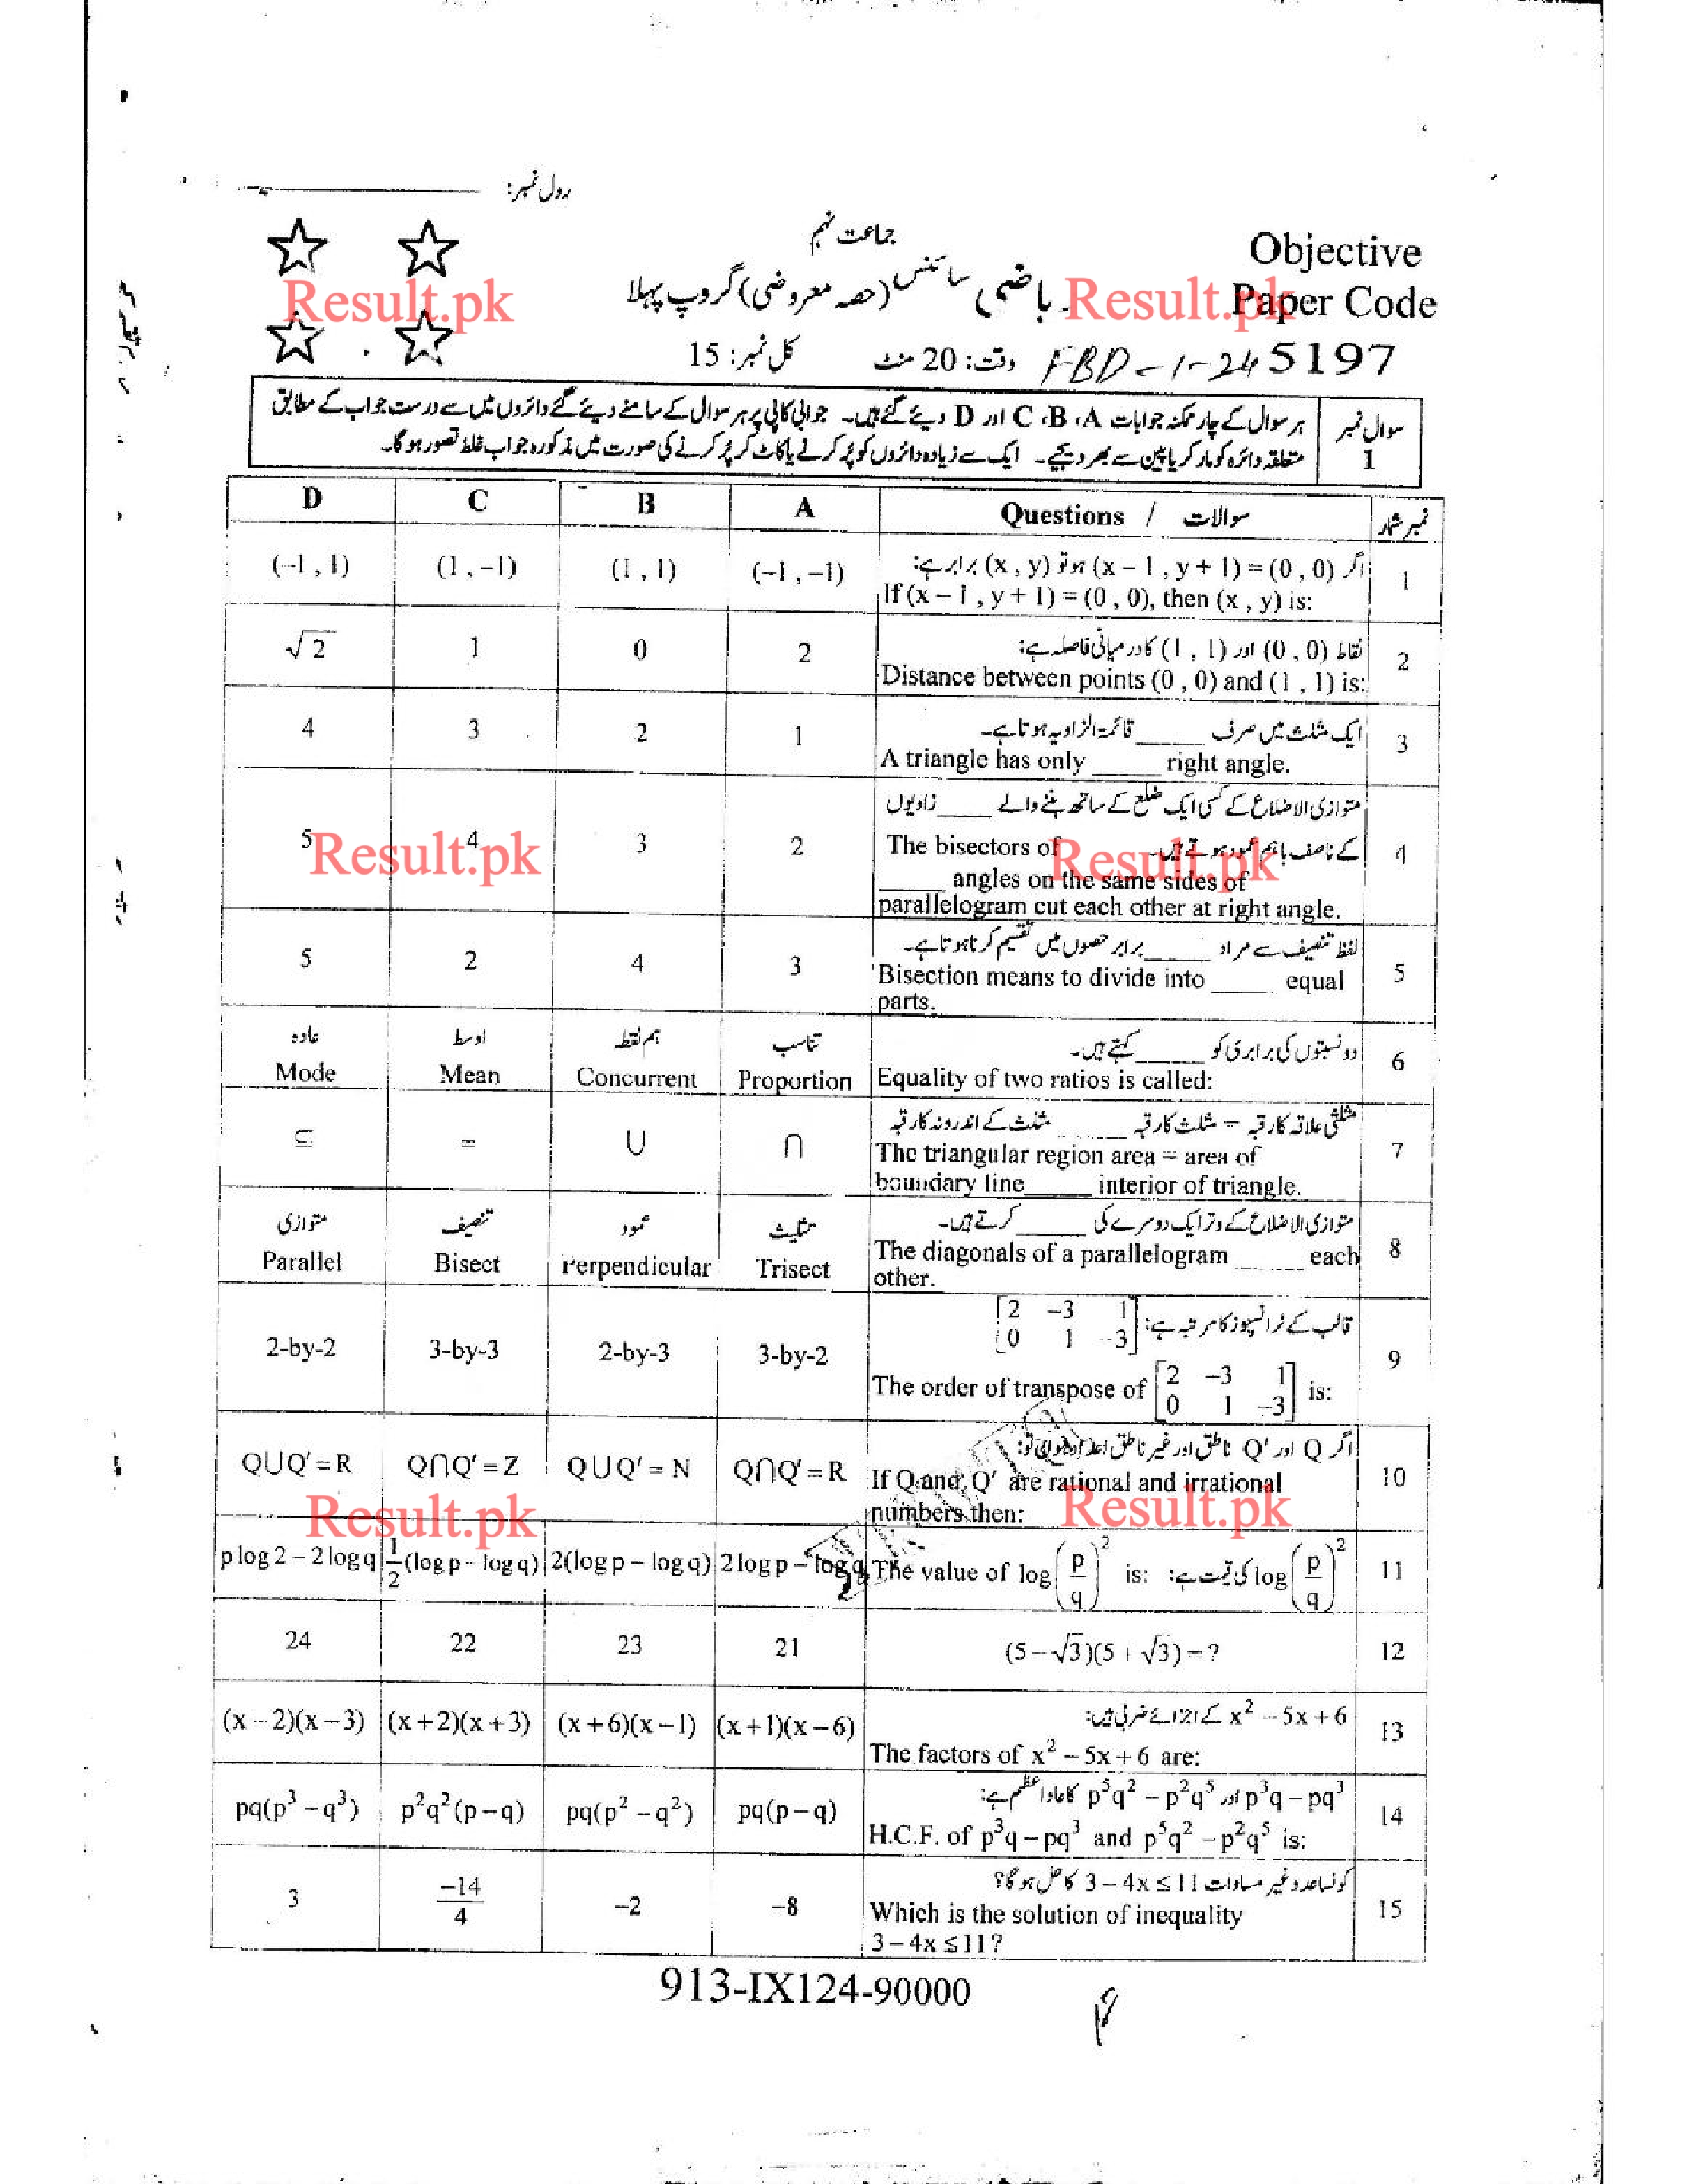 رول نمبر:
جماعت نہم
Objective
ریاضی سائنس (حصہ معروضی) گروپ پہلا
Paper Code
Result.pk
Result.pk
5197
FBD-1-24
وقت: 20 منٹ
کل نمبر: 15
سوال نمبر 1
ہر سوال کے چار ممکنہ جوابات A، B، C اور D دیئے گئے ہیں۔ جوابی کاپی پر ہر سوال کے سامنے دیئے گئے دائروں میں سے درست جواب کے مطابق
متعلقہ دائرہ کو مارکر یا پین سے بھر دیجیے۔ ایک سے زیادہ دائروں کو پُر کرنے یا کاٹ کر پُر کرنے کی صورت میں مذکورہ جواب غلط تصور ہوگا۔
D C B A Questions / سوالات نمبر شمار
اگر (x – 1 , y + 1) = (0 , 0) ہو تو (x , y) برابر ہے:
(–1 , 1) (1 , –1) (1 , 1) (–1 , –1) If (x – 1 , y + 1) = (0 , 0), then (x , y) is: 1
نقاط (0 , 0) اور (1 , 1) کا درمیانی فاصلہ ہے:
√2 1 0 2 Distance between points (0 , 0) and (1 , 1) is: 2
ایک مثلث میں صرف _____ قائمۃ الزاویہ ہوتا ہے۔
4 3 2 1 A triangle has only _____ right angle. 3
متوازی الاضلاع کے کسی ایک ضلع کے ساتھ بننے والے ____ زاویوں
کے ناصف باہم عمود ہوتے ہیں۔
5 4 3 2 The bisectors of 4
_____ angles on the same sides of
parallelogram cut each other at right angle.
Result.pk
Result.pk
لفظ تنصیف سے مراد _____ برابر حصوں میں تقسیم کرنا ہوتا ہے۔
5 2 4 3 Bisection means to divide into _____ equal 5
parts.
دو نسبتوں کی برابری کو _____ کہتے ہیں۔
عادہ اوسط ہم نقطہ تناسب
Mode Mean Concurrent Proportion Equality of two ratios is called: 6
مثلثی علاقہ کا رقبہ = مثلث کا رقبہ _____ مثلث کے اندرونہ کا رقبہ
⊆ = ∪ ∩ The triangular region area = area of 7
boundary line_____ interior of triangle.
متوازی الاضلاع کے وتر ایک دوسرے کی _____ کرتے ہیں۔
متوازی تنصیف عمود تثلیث
Parallel Bisect Perpendicular Trisect The diagonals of a parallelogram _____ each 8
other.
قالب کے ٹرانسپوز کا مرتبہ ہے: [2 –3 1
0 1 –3]
2-by-2 3-by-3 2-by-3 3-by-2 The order of transpose of [2 –3 1
0 1 –3] is: 9
اگر Q اور Q′ ناطق اور غیر ناطق اعداد ہوں تو:
Q∪Q′ = R Q∩Q′ = Z Q∪Q′ = N Q∩Q′ = R If Q and Q′ are rational and irrational 10
numbers then:
Result.pk
Result.pk
p log 2 – 2 log q 1/2 (log p – log q) 2(log p – log q) 2 log p – log q The value of log(p/q)² is: log(p/q)² کی قیمت ہے: 11
24 22 23 21 (5 – √3)(5 + √3) = ? 12
x² – 5x + 6 کے اجزائے ضربی ہیں:
(x – 2)(x – 3) (x + 2)(x + 3) (x + 6)(x – 1) (x + 1)(x – 6) The factors of x² – 5x + 6 are: 13
p³q – pq³ اور p⁵q² – p²q⁵ کا عاد اعظم ہے:
pq(p³ – q³) p²q²(p – q) pq(p² – q²) pq(p – q) H.C.F. of p³q – pq³ and p⁵q² – p²q⁵ is: 14
کونسا عدد غیر مساوات 3 – 4x ≤ 11 کا حل ہوگا؟
3 –14/4 –2 –8 Which is the solution of inequality 15
3 – 4x ≤ 11?
913-IX124-90000